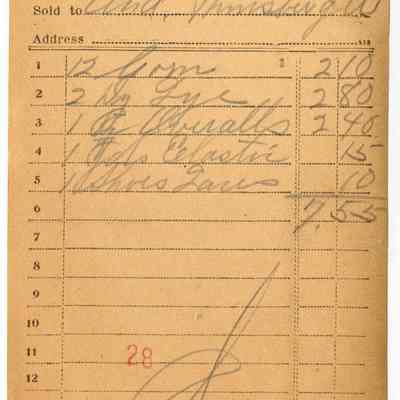 Sold to And,
Address
1 12 Corn 2 10
2 2 Dy Lye 2 80
3 1 Pr Overalls 2 40
4 1 Elastic 15
5 1 Shoes Laces 10
6 7.55
7
8
9
10
11 28
12